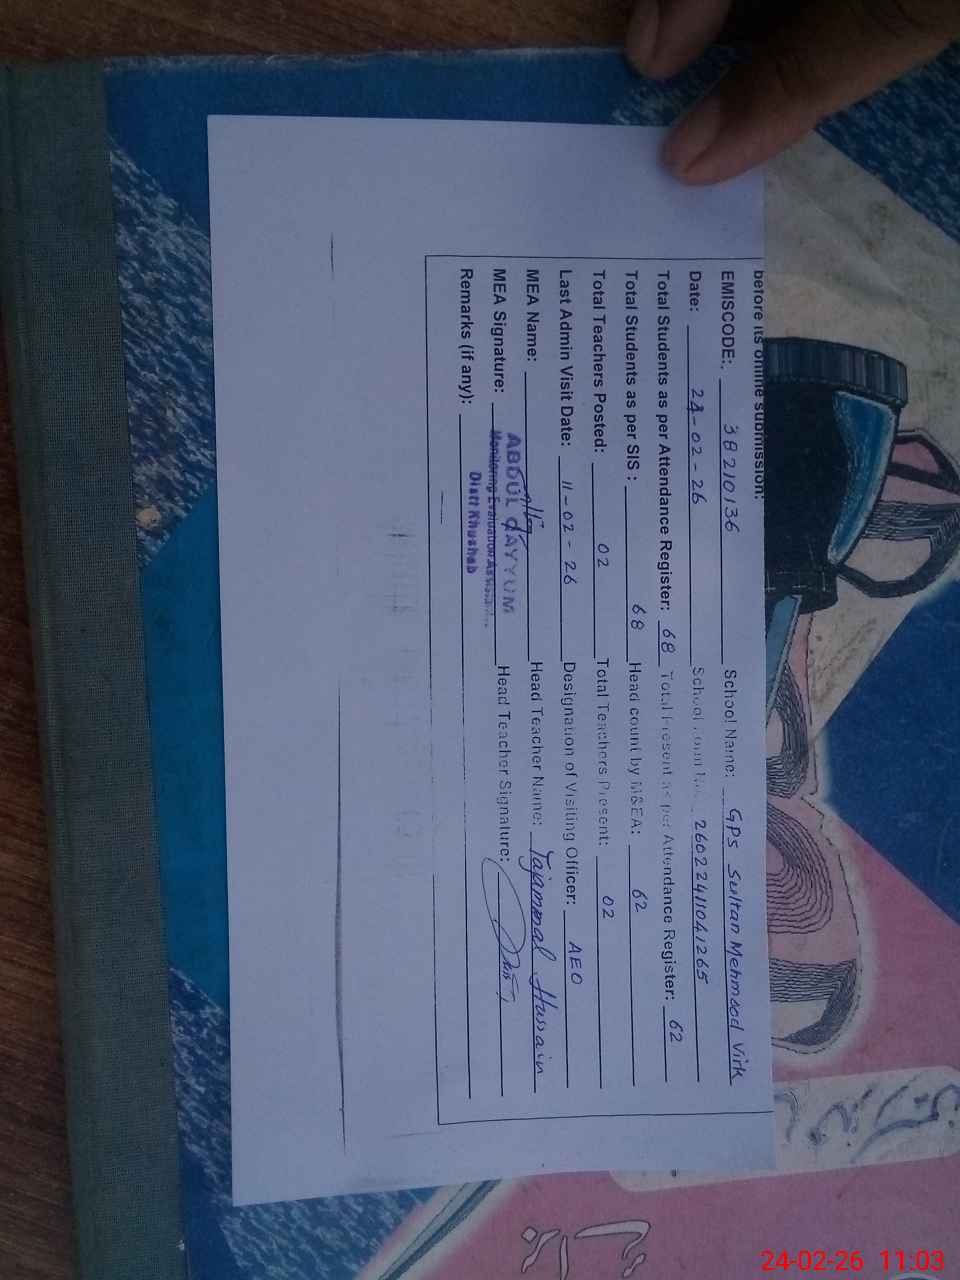 before its online submission:
EMISCODE:. 38210136 School Name: GPS Sultan Mehmood Virk
Date: 24-02-26 School 26022411041265
Total Students as per Attendance Register: 68 Total Present as per Attendance Register: 62
Total Students as per SIS : 68 Head count by M&EA: 62
Total Teachers Posted: 02 Total Teachers Present: 02
Last Admin Visit Date: 11-02-26 Designation of Visiting Officer: AEO
MEA Name: Head Teacher Name: Tajammal Hussain
ABDUL QAYYUM
MEA Signature: Head Teacher Signature:
Monitoring Evaluation Assistant
Distt Khushab
Remarks (if any):
24-02-26 11:03